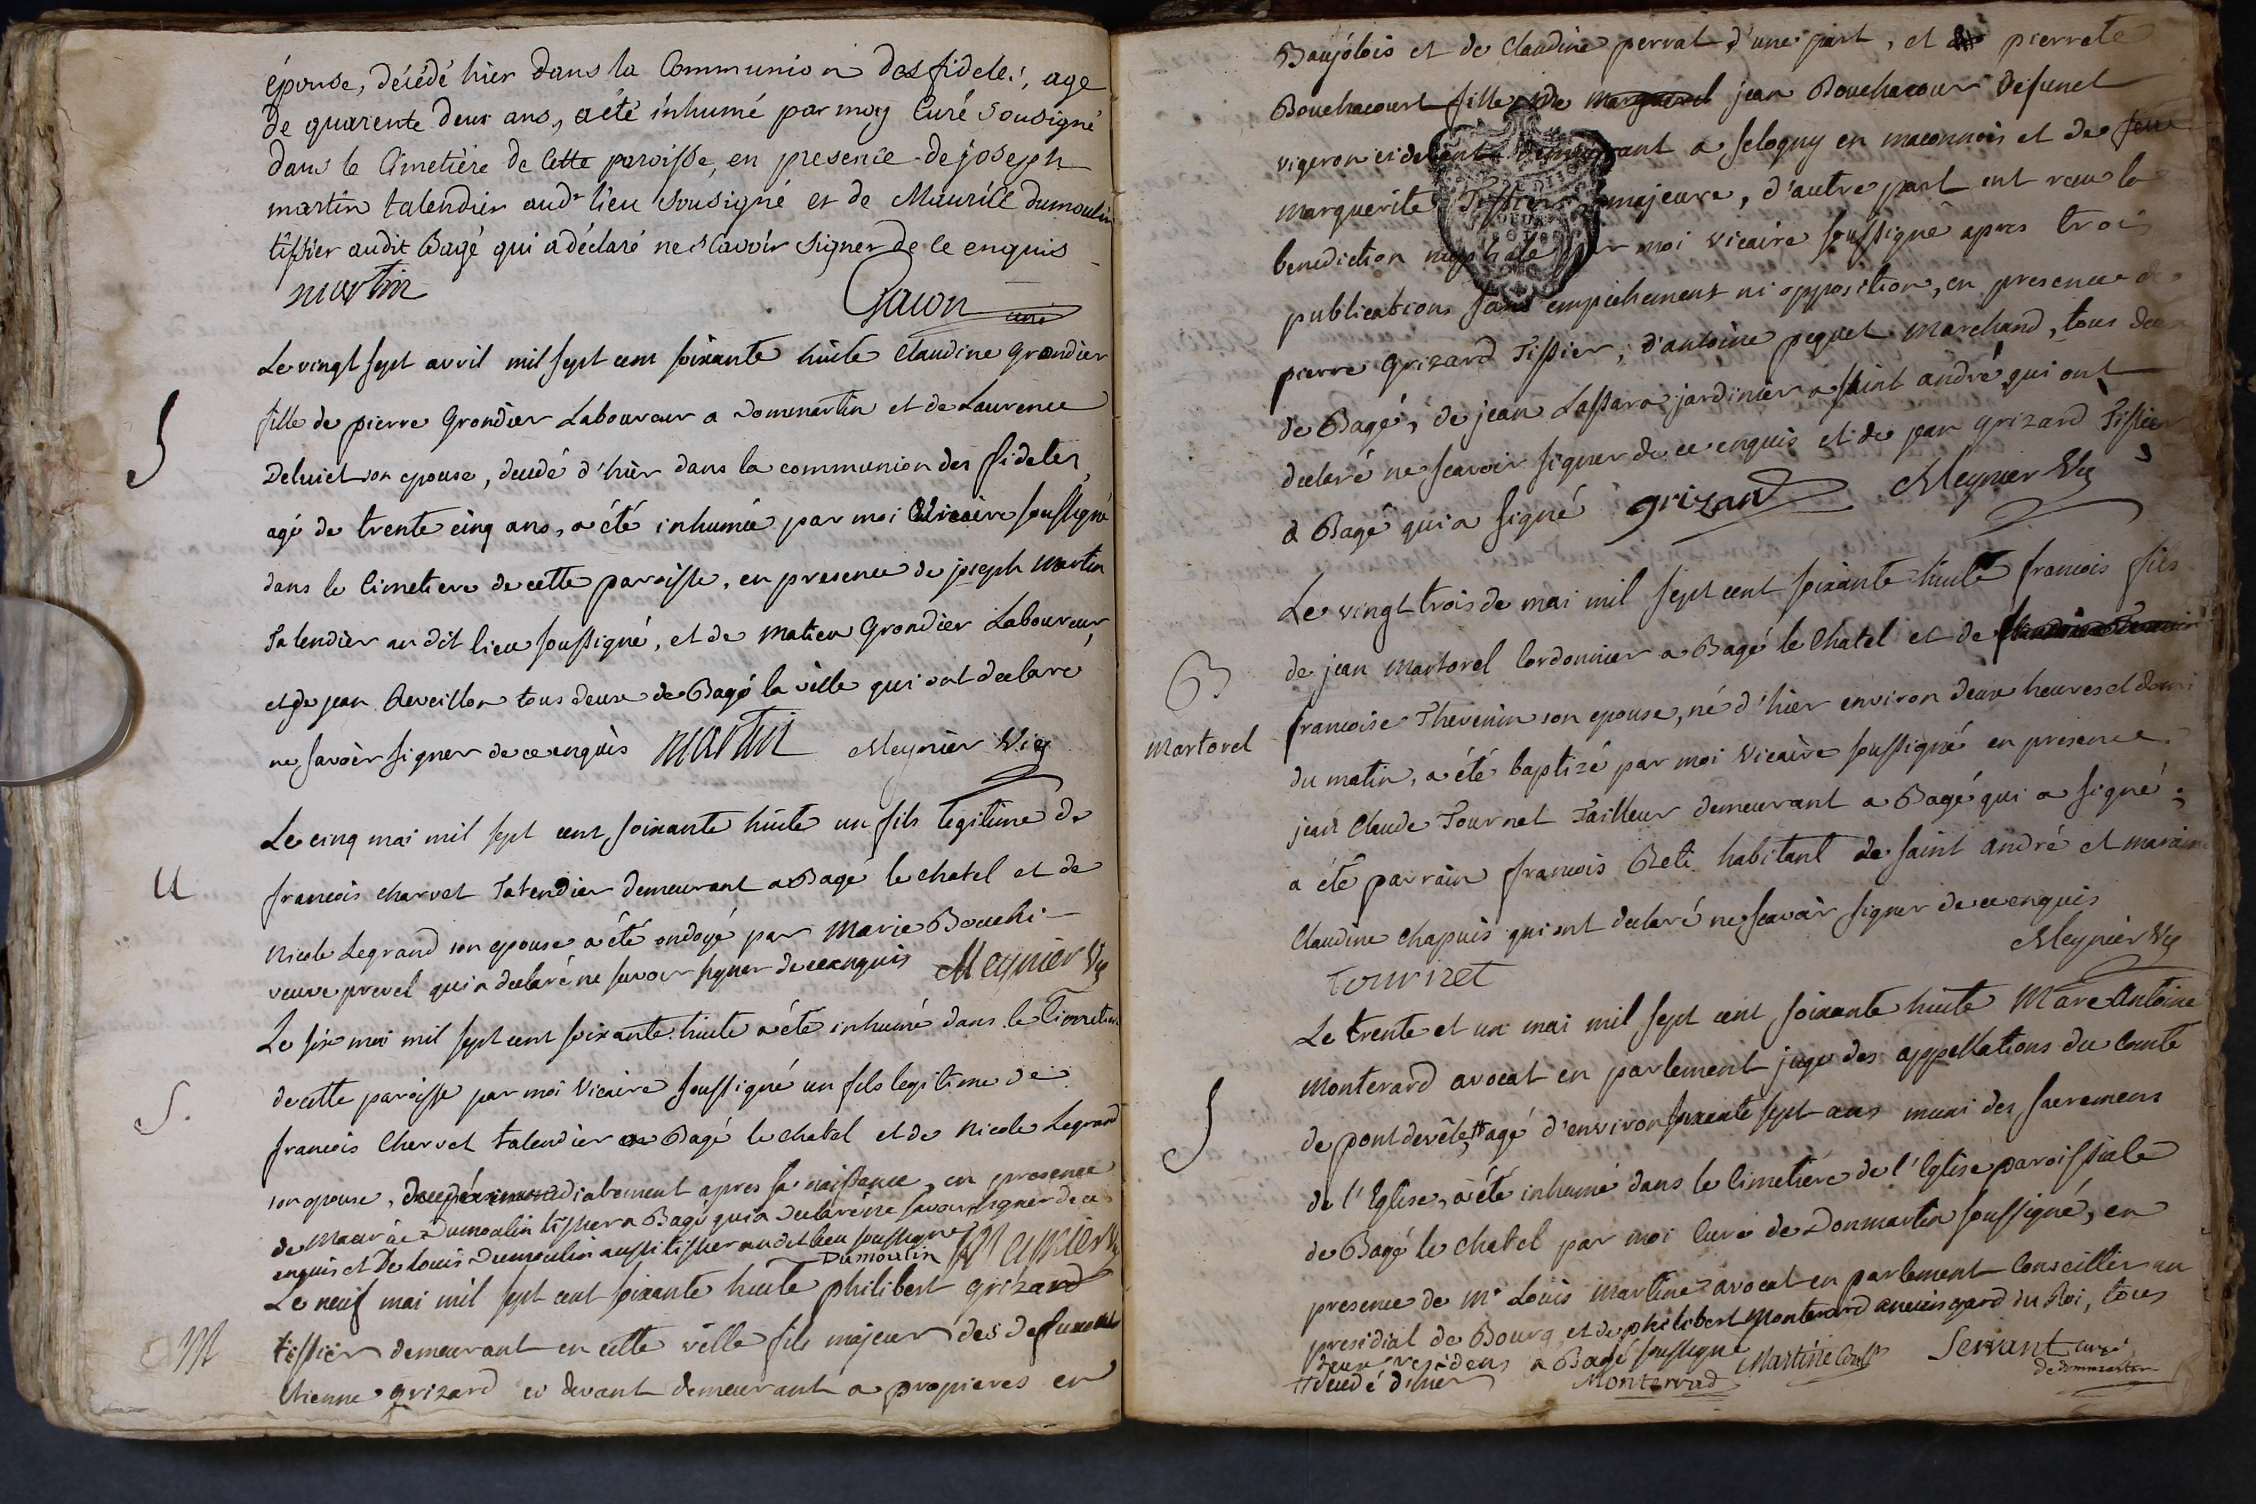 épouse, décédé hier dans la Communion des fideles, age
de quarente deux ans, a été inhumé par moy Curé Sousigné
dans le Cimetière de Cette paroisse, en presence de joseph
martin talendier aud.r lieu sousigné et de Maurice dumoulin
tissier audit Bagé qui a déclaré ne scavoir signer de ce enquis
martin
Gacon curé
Le vingt sept avril mil sept cent soixante huite Claudine Grandier
S
fille de pierre Grondier Laboureur a dommartin et de Laurence
son epouse, decedé d'hier dans la communion des fideles,
agé de trente cinq ans, a été inhumée par moi Vicaire soussigné
dans le Cimetiere de cette paroisse, en presence de joseph Martin
Talendier au dit lieu soussigné, et de matieu Grondier Laboureur,
et de jean Reveillon tous deux de Bagé la ville qui ont declaré
ne savoir signer de ce enquis martin Meynier Vic
Le cinq mai mil sept cent soixante huite un fils legitime de
U
francois charvet Talendier demeurant a Bagé le chatel et de
Nicole Legrand son epouse a été ondoyé par Marie Bouchi
veuve prevel qui a declaré ne savoir signer de ce enquis Meynier Vic
Le six mai mil sept cent soixante huite a été inhumé dans le Cimetiere
S.
de cette paroisse par moi Vicaire soussigné un fils legitime de
francois Chervet talendier a Bagé le chatel et de Nicole Legrand
son epouse, decedé immediatement apres sa naissance, en presence
de Maurice Dumoulin tissier a Bagé qui a declaré ne savoir signer de ce
enquis et De louis Dumoulin aussi tissier audit lieu soussigné
Dumoulin Meynier Vic
Le neuf mai mil sept cent soixante huite philibert grizard
M
tissier demeurant en cette ville fils majeur des defunts
Etienne grizard ci devant demeurant a propieres en
Baujolois et de Claudine perrat d'une part, et de pierrete
Bouchacourt fille de jean Bouchacour defunct
vigeron ci devant demeurant a sologny en maconnois et de feue
marguerite Tissier majeure, d'autre part ont recu la
benediction nuptiale par moi Vicaire soussigné apres trois
publications sans empechement ni opposition, en presence de
pierre Grizard Tissier, d'antoine pequet Marchand, tous deux
de Bagé, de jean Lassara jardinier a saint andré qui ont
declaré ne scavoir signer de ce enquis et de jean grizard Tissier
a Bagé qui a signé grizard Meynier Vic
Le vingt trois de mai mil sept cent soixante huite francois fils
B
de jean martorel Cordonnier a Bagé le Chatel et de
Martorel
francoise Thevenin son epouse, né d'hier environ deux heures et demi
du matin, a été baptizé par moi Vicaire soussigné en presence
jean Claude Tournet Tailleur demeurant a Bagé qui a signé ;
a été parrain francois Reti habitant de saint andré et maraine
Claudine chapuis qui ont declaré ne scavoir signer de ce enquis
Meynier Vic
Tournet
Le trente et un mai mil sept cent soixante huite Marc Antoine
Monterard avocat en parlement juge des appellations du Comte
S
de pont de vêle, # agé d'environ soixante sept ans muni des sacremens
de l'Eglise, a été inhumé dans le Cimetière de l'Eglise paroissiale
de Bagé le chatel par moi Curé de Donmartin soussigné, en
presence de Mr Louis Martine avocat en parlement Conseiller au
presidial de Bourg et de philibert Monterard ancien gard du Roi, tous
deux residens a Bagé soussigné Martine Servant curé
# decedé d'hier Monterrad de dommartin